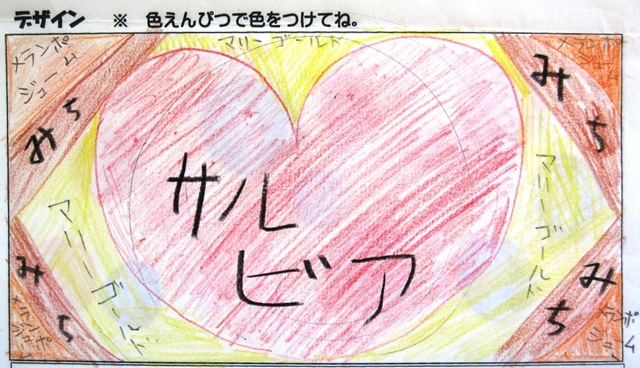 デザイン ※ 色えんぴつで色をつけてね。
メランポ
ジューム
マリーゴールド
メランポ
ジューム
みち
みち
サル
ビア
マリーゴールド
マリーゴールド
みち
みち
メランポ
ジューム
メランポ
ジューム